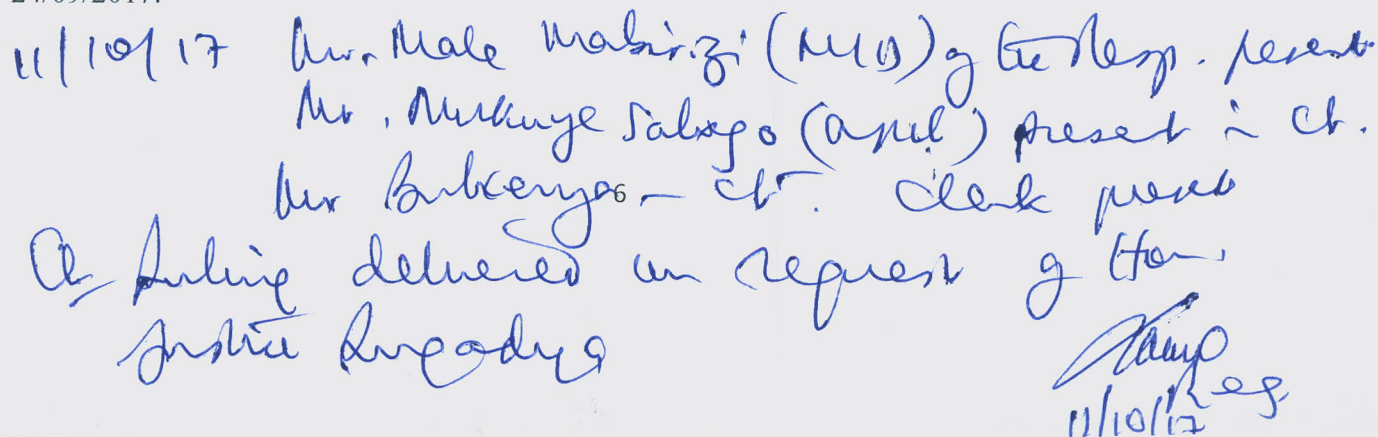 24/09/2017.
11/10/17 Mr. Male Mabirizi (M/D) of the Resp. present
Mr. Mukuye Salongo (appl) present in Ct.
Mr Bukenya - Ct. Clerk present
6
Ct Ruling delivered on request of Hon.
Justice Rugadya
Reg
11/10/17